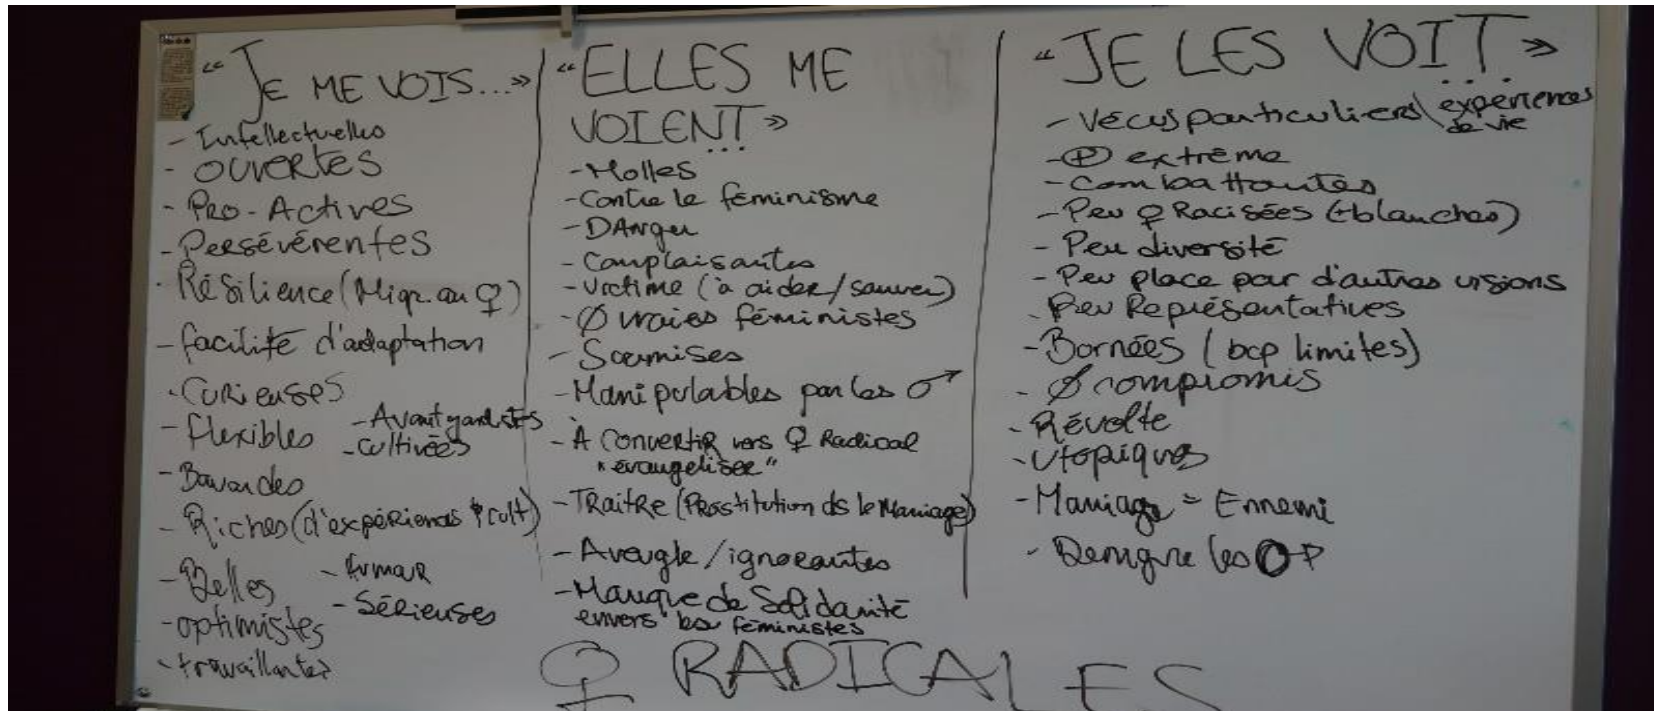 “JE ME VOIS...»
- Intellectuelles
- OUVERTES
- PRO-Actives
- PERSÉVÉRENTES
- Résilience (Migr. au ♀)
- facilité d'adaptation
- CURieuses
- flexibles
- Avant gardistes
- Cultivées
- Bavardes
- Riches (d'expériences & cult)
- Belles
- Humour
- SÉRieuses
- optimistes
- travaillantes
“ELLES ME
VOIENT...»
- Molles
- Contre le féminisme
- DANger
- Complaisantes
- Victime (à aider/sauver)
- Ø vraies féministes
- Soumises
- Manipulables par les ♂
- À CONVERTIR vers ♀ Radical
"évangeliser"
- TRAitRe (PRostitution ds le Mariage)
- Aveugle/ignorantes
- Manque de Solidarité
envers les féministes
“JE LES VOIT...»
- Vécus particuliers/expériences
de vie
- ⊕ extrême
- Combattantes
- Peu ♀ Racisées (+blanches)
- Peu diversité
- Peu place pour d'autres visions
- Peu Représentatives
- Bornées (bcp limites)
- Ø compromis
- Révolte
- Utopiques
- Mariage = Ennemi
- Denigre les
♀ RADICALES